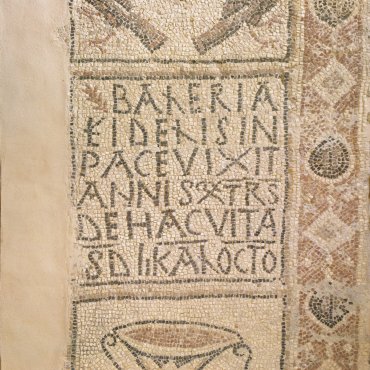 BALERIA
FIDELIS IN
PACE VIXIT
ANNIS XX TRS
DE HAC VITA
S D II KAL OCTO